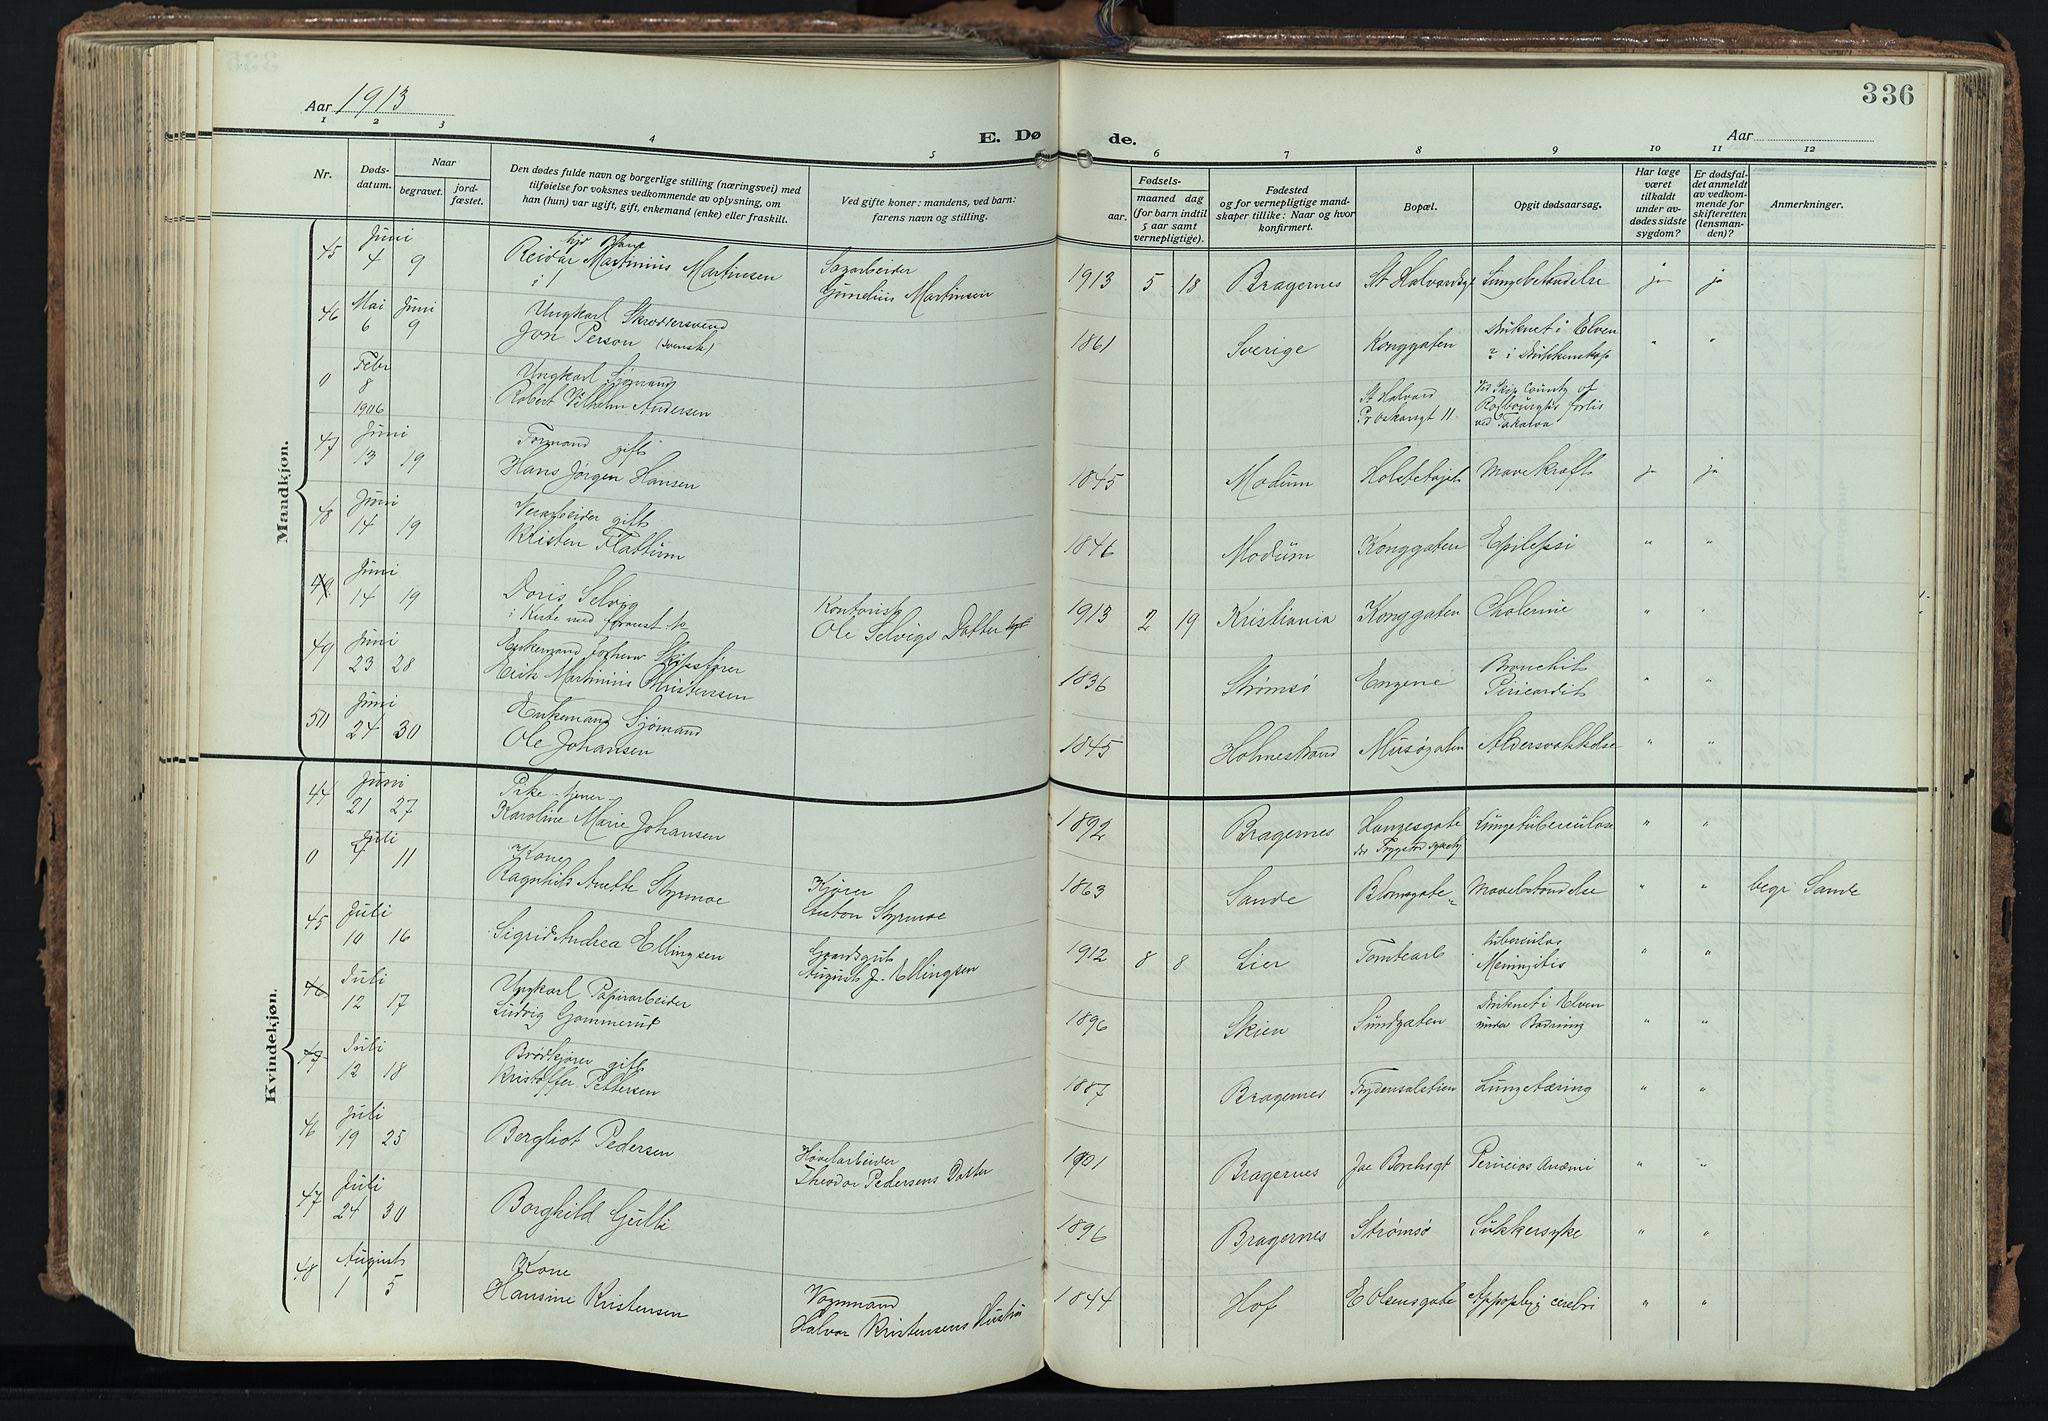 336
Aar 1913
E. Dø de.
Aar
1 2 3 4 5 6 7 8 9 10 11 12
Nr.
Døds-
datum.
Naar
begravet.
jord-
fæstet.
Den dødes fulde navn og borgerlige stilling (næringsvei) med
tilføielse for voksnes vedkommende av oplysning, om
han (hun) var ugift, gift, enkemand (enke) eller fraskilt.
Ved gifte koner: mandens, ved barn:
farens navn og stilling.
Fødsels-
aar.
maaned dag
(for barn indtil
5 aar samt
vernepligtige).
Fødested
og for vernepligtige mand-
skaper tillike: Naar og hvor
konfirmert.
Bopæl.
Opgit dødsaarsag.
Har læge
været
tilkaldt
under av-
dødes sidste
sygdom?
Er dødsfal-
det anmeldt
av vedkom-
mende for
skifteretten
(lensman-
den)?
Anmerkninger.
Mandkjøn.
45 Juni 4 9
Reidar Martinius Martinsen
Sagarbeider
Gunelius Martinsen
1913 5 18 Bragernes St Halvardsgt Lungebetændelse ja ja
46 Mai 6 Juni 9
Ungkarl Skrædersvend
Jon Person (svensk)
1861 Sverige Konggaten Druknet i Elven
? i Drukkenskap " "
0 Febr 8 1906
Ungkarl Sjømand
Robert Vilhelm Andersen
St Halvard
Pr Oskarsgt 11
Ved Skip County of
Roxburgh forlis
ved Takaroa
47 Juni 13 19
Formand gift
Hans Jørgen Hansen
1845 Modum Mavekræft ja ja
48 Juni 14 19
gift
Kristen Flattum
1846 Modum Konggaten Epilepsi " "
49 Juni 14 19
Doris Selvig
i Kiste med
Kontorist
Ole Selvigs Datter
1913 2 19 Kristiania Konggaten Cholerine " "
49 Juni 23 28
Enkemand forhenv Skipsfører
Erik Martinius Kristensen
1836 Strømsø Engene Bronchit
Pericardit " "
50 Juni 24 30
Enkemand Sjømand
Ole Johansen
1845 Holmestrand Musøgaten Alderssvækkelse " "
Kvindekjøn.
44 Juni 21 27
Pike tjener
Karoline Marie Johansen
1892 Bragernes Langesgate Lungetuberculose " "
0 Juli 7 11
Kone
Ragnhild Anette Styrmoe
Kjører
Anton Styrmoe
1863 Sande Blomsgate Mavebetændelse " " begr Sande
45 Juli 10 16
Sigrid Andrea Ellingsen
Gaardsgut
August J. Ellingsen
1912 8 8 Lier tuberculøs
Meningitis " "
46 Juli 12 17
Ungkarl Papirarbeider
Ludvig Gommerud
1896 Skien Sundgaten Druknet i Elven
under Badning " "
47 Juli 12 18
Brødkjører gift
Kristoffer Pettersen
1887 Bragernes Frydensalstien Lungetæring " "
46 Juli 19 25
Bergliot Pedersen
Høvelarbeider
Theodor Pedersens Datter
1901 Bragernes Jac Borchsgt Pernicios Anæmi " "
47 Juli 24 30
Borghild Gulli
1896 Bragernes Strømsø Sukkersyke " "
48 August 1 5
Kone
Hansine Kristensen
Vognmand
Halvor Kristensens Hustru
1844 Hof E Olsensgate Appoplexi cerebri " "